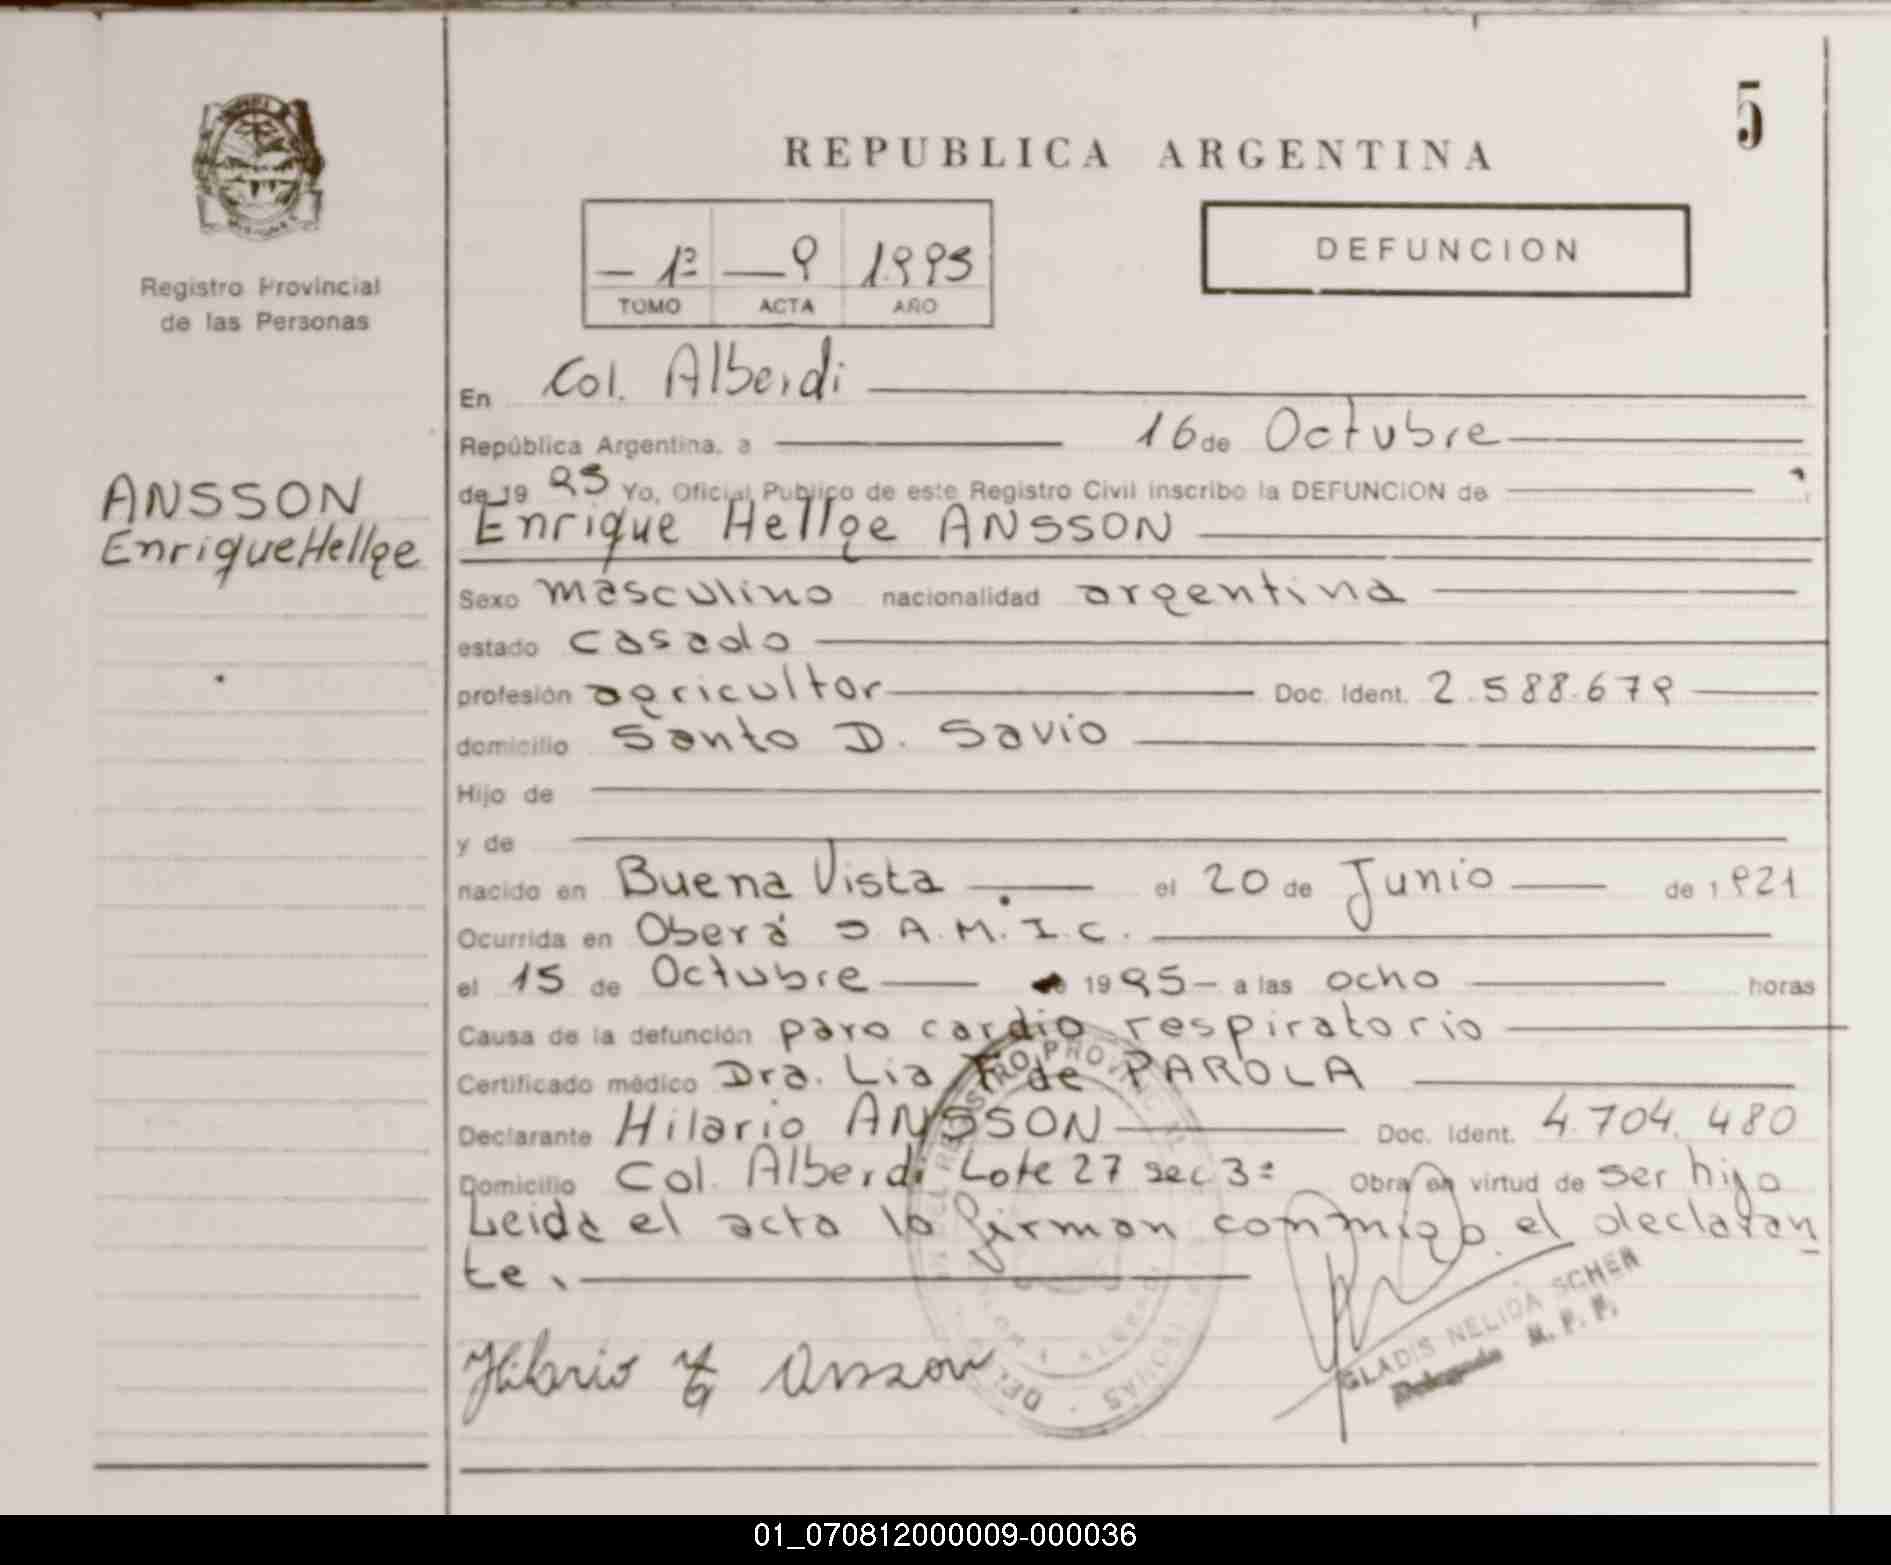 5
REPUBLICA ARGENTINA
1º 9 1995
TOMO ACTA AÑO
DEFUNCION
Registro Provincial
de las Personas
ANSSON
Enrique Hellge
En Col. Alberdi
República Argentina, a 16 de Octubre
de 19 95 Yo, Oficial Publico de este Registro Civil inscribo la DEFUNCION de
Enrique Hellge ANSSON
Sexo masculino nacionalidad argentina
estado casado
profesión agricultor Doc. Ident. 2.588.679
domicilio Santo D. Savio
Hijo de
y de
nacido en Buena Vista el 20 de Junio de 1921
Ocurrida en Oberá S.A.M.I.C.
el 15 de Octubre de 1995 a las ocho horas
Causa de la defunción paro cardio respiratorio
Certificado médico Dra. Lia F. de PAROLA
Declarante Hilario ANSSON Doc. Ident. 4.704.480
Domicilio Col. Alberdi Lote 27 sec 3ª Obra en virtud de ser hijo
Leida el acta la firman conmigo el declaran
te.
Hilario Ansson
GLADIS NELIDA SCHER
Delegada M.P.F.
01_070812000009-000036